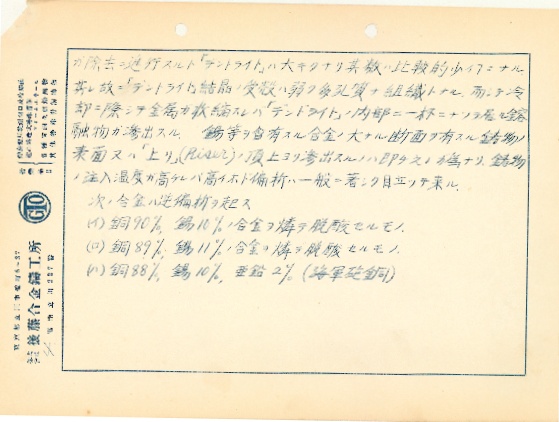 ガ除去ニ進行スルト「デンドライト」ハ大キクナリ其数ハ比較的少イコトニナル
其レ故ニ「デンドライト」結晶ノ受殻ハ弱ク多孔質ナ組織トナル。而シテ冷
却ニ際シテ金属ガ収縮スレバ「デンドライト」ノ内部ニ一杯ニナツテ居ル鎔
融物ガ滲出スル。 錫等ヲ含有スル合金ノ大ナル断面ヲ有スル鋳物ノ
表面又ハ「上リ」(Riser)ノ頂上ヨリ滲出スルノハ即チ之レガ為ナリ、鋳物
ノ注入温度ガ高ケレバ高イホド偏析ハ一般ニ著シク目立ツテ来ル。
次ノ合金ハ逆偏析ヲ起ス
(イ) 銅90%, 錫10%ノ合金ヲ燐デ脱酸セルモノ.
(ロ) 銅89%, 錫11%ノ合金ヲ燐デ脱酸セルモノ.
(ハ) 銅88%, 錫10%, 亜鉛2% (海軍砲銅)
GTO
後藤合金鋳工所